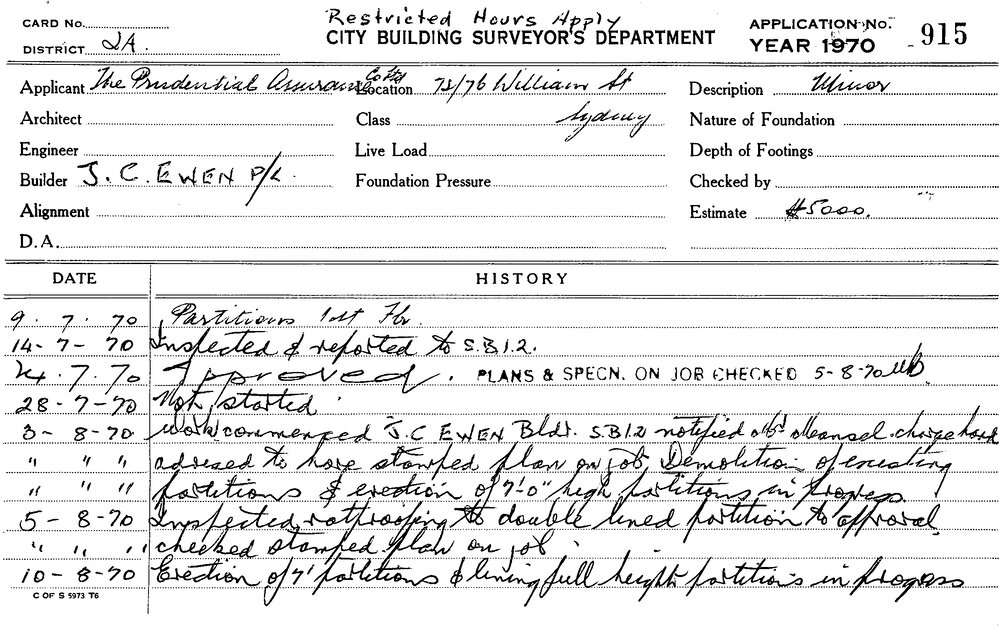 Restricted Hours Apply
CARD No. CITY BUILDING SURVEYOR'S DEPARTMENT APPLICATION No. 915
DISTRICT 2A. YEAR 1970
Applicant The Prudential Assurance Co Ltd Location 75/76 William St Description Minor
Architect Class Sydney Nature of Foundation
Engineer Live Load Depth of Footings
Builder J. C. EWEN P/L. Foundation Pressure Checked by
Alignment Estimate $5000.
D.A.
DATE HISTORY
9. 7. 70 Partitions 1st Flr.
14-7-70 Inspected & reported to S.B.I.2.
24.7.70 Approved. PLANS & SPECN. ON JOB CHECKED 5-8-70
28-7-70 Not started.
3-8-70 Work commenced J.C EWEN Bldr. S.B.I.2 notified Mr Mansel. charge hand
" " " advised to have stamped plan on job. Demolition of existing
" " " partitions & erection of 7'-0" high partitions in progress.
5-8-70 Inspected ratproofing to double lined partition to approval
" " " checked stamped plan on job.
10-8-70 Erection of 7' partitions & lining full height partitions in progress
C OF S 5973 T6